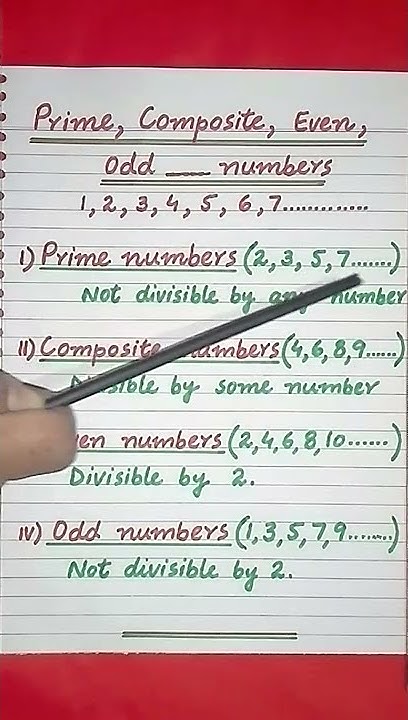 Prime, Composite, Even,
Odd ___ numbers
1, 2, 3, 4, 5, 6, 7.............
I) Prime numbers (2, 3, 5, 7.......)
Not divisible by any number
II) Composite numbers (4,6,8,9......)
by some number
numbers (2,4,6,8,10......)
Divisible by 2.
IV) Odd numbers (1,3,5,7,9........)
Not divisible by 2.